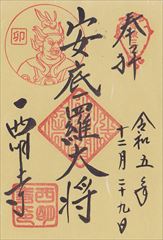 奉拝
卯
安底羅大将
西明寺
令和五年
十二月二十九日